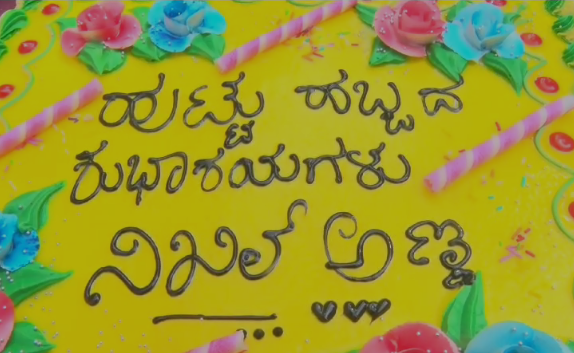 ಹುಟ್ಟು ಹಬ್ಬದ
ಶುಭಾಶಯಗಳು
ನಿಖಿಲ್ ಅಣ್ಣ